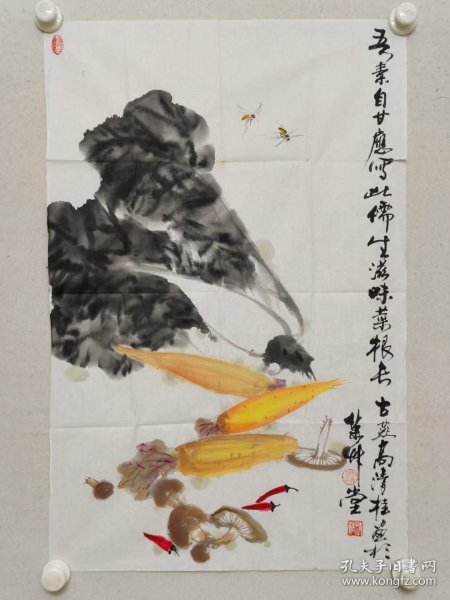 吾素自甘應寫此儒生滋味菜根長 古燕高清桂並於
紫竹堂
孔夫子旧书网
www.kongfz.com